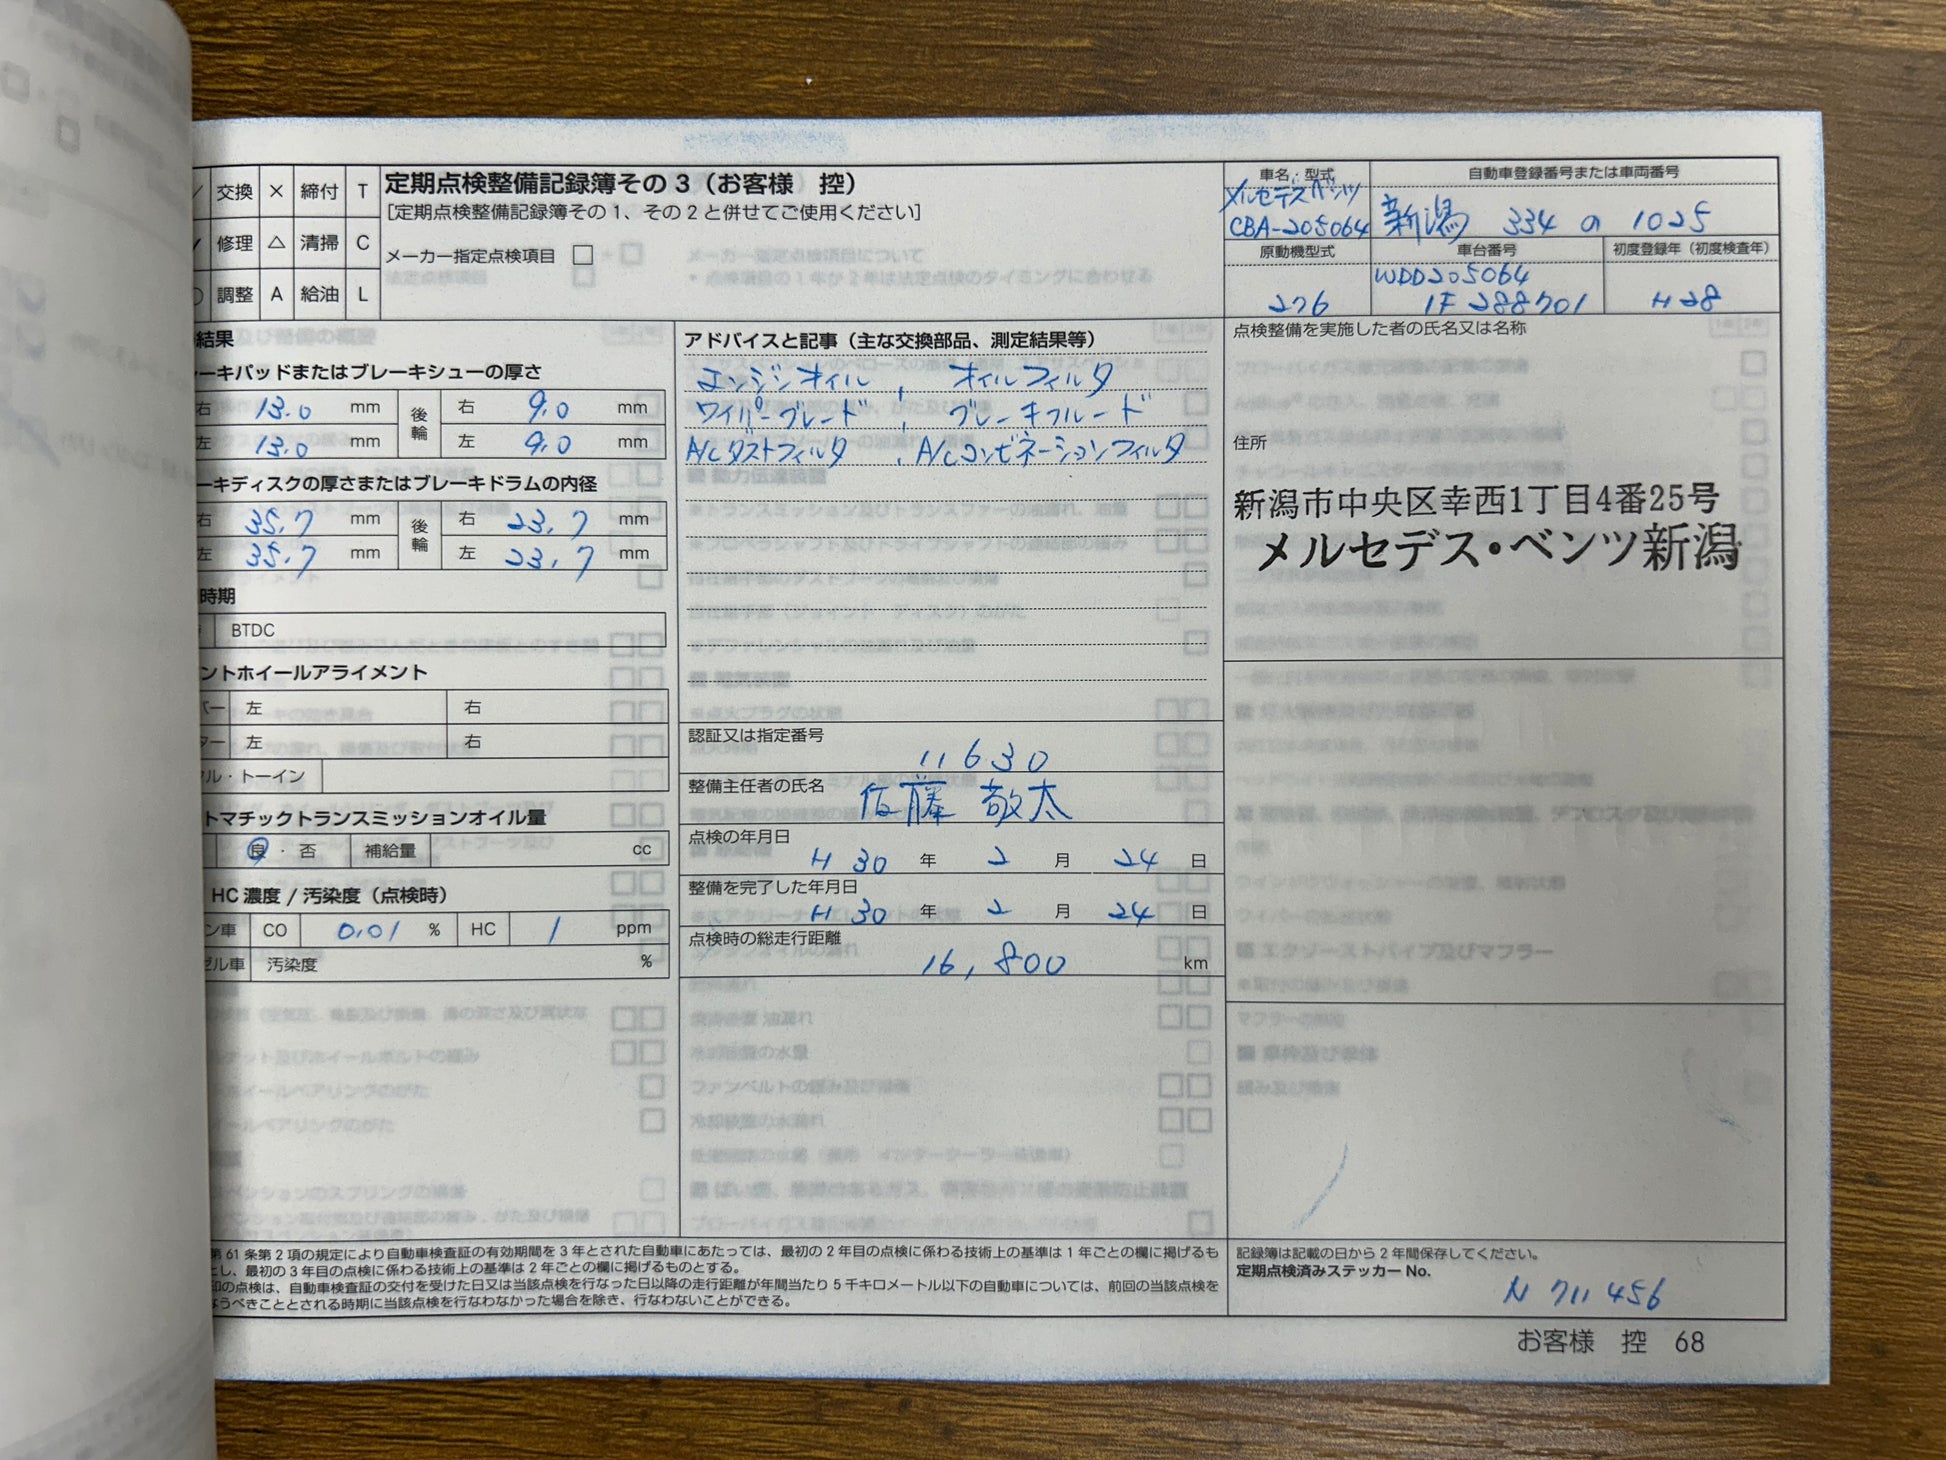 交換 × 締付 T
修理 △ 清掃 C
調整 A 給油 L
定期点検整備記録簿その3（お客様 控）
［定期点検整備記録簿その1、その2と併せてご使用ください］
メーカー指定点検項目 □
車名・型式
メルセデスベンツ
CBA-205064
自動車登録番号または車両番号
新潟 334 の 1025
原動機型式
276
車台番号
WDD205064
1F288701
初度登録年（初度検査年）
H28
結果
ーキパッドまたはブレーキシューの厚さ
右 13.0 mm 後輪 右 9.0 mm
左 13.0 mm 左 9.0 mm
ーキディスクの厚さまたはブレーキドラムの内径
右 35.7 mm 後輪 右 23.7 mm
左 35.7 mm 左 23.7 mm
時期
BTDC
ントホイールアライメント
バー 左 右
ター 左 右
ル・トーイン
トマチックトランスミッションオイル量
良・否 補給量 cc
HC濃度 / 汚染度（点検時）
ン車 CO 0.01 % HC 1 ppm
ゼル車 汚染度 %
アドバイスと記事（主な交換部品、測定結果等）
エンジンオイル , オイルフィルタ
ワイパーブレード , ブレーキフルード
A/Cダストフィルタ , A/Cコンビネーションフィルタ
認証又は指定番号
11630
整備主任者の氏名
佐藤 敬太
点検の年月日
H 30 年 2 月 24 日
整備を完了した年月日
H 30 年 2 月 24 日
点検時の総走行距離
16,800 km
点検整備を実施した者の氏名又は名称
住所
新潟市中央区幸西1丁目4番25号
メルセデス・ベンツ新潟
第61条第2項の規定により自動車検査証の有効期間を3年とされた自動車にあたっては、最初の2年目の点検に係わる技術上の基準は1年ごとの欄に掲げるも
とし、最初の3年目の点検に係わる技術上の基準は2年ごとの欄に掲げるものとする。
印の点検は、自動車検査証の交付を受けた日又は当該点検を行なった日以降の走行距離が年間当たり5千キロメートル以下の自動車については、前回の当該点検を
なうべきこととされる時期に当該点検を行なわなかった場合を除き、行なわないことができる。
記録簿は記載の日から2年間保存してください。
定期点検済みステッカーNo.
N 711456
お客様 控 68